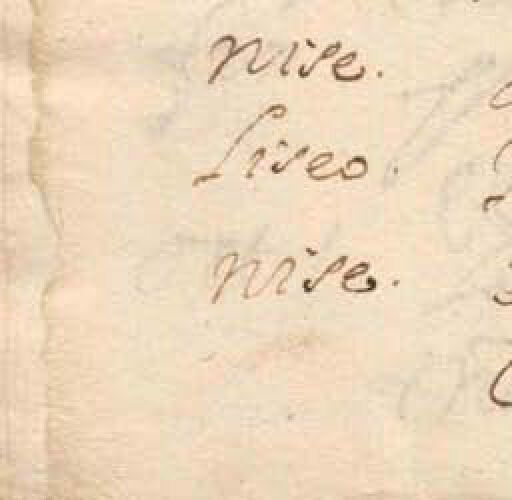 Nise.
Liseo.
Nise.